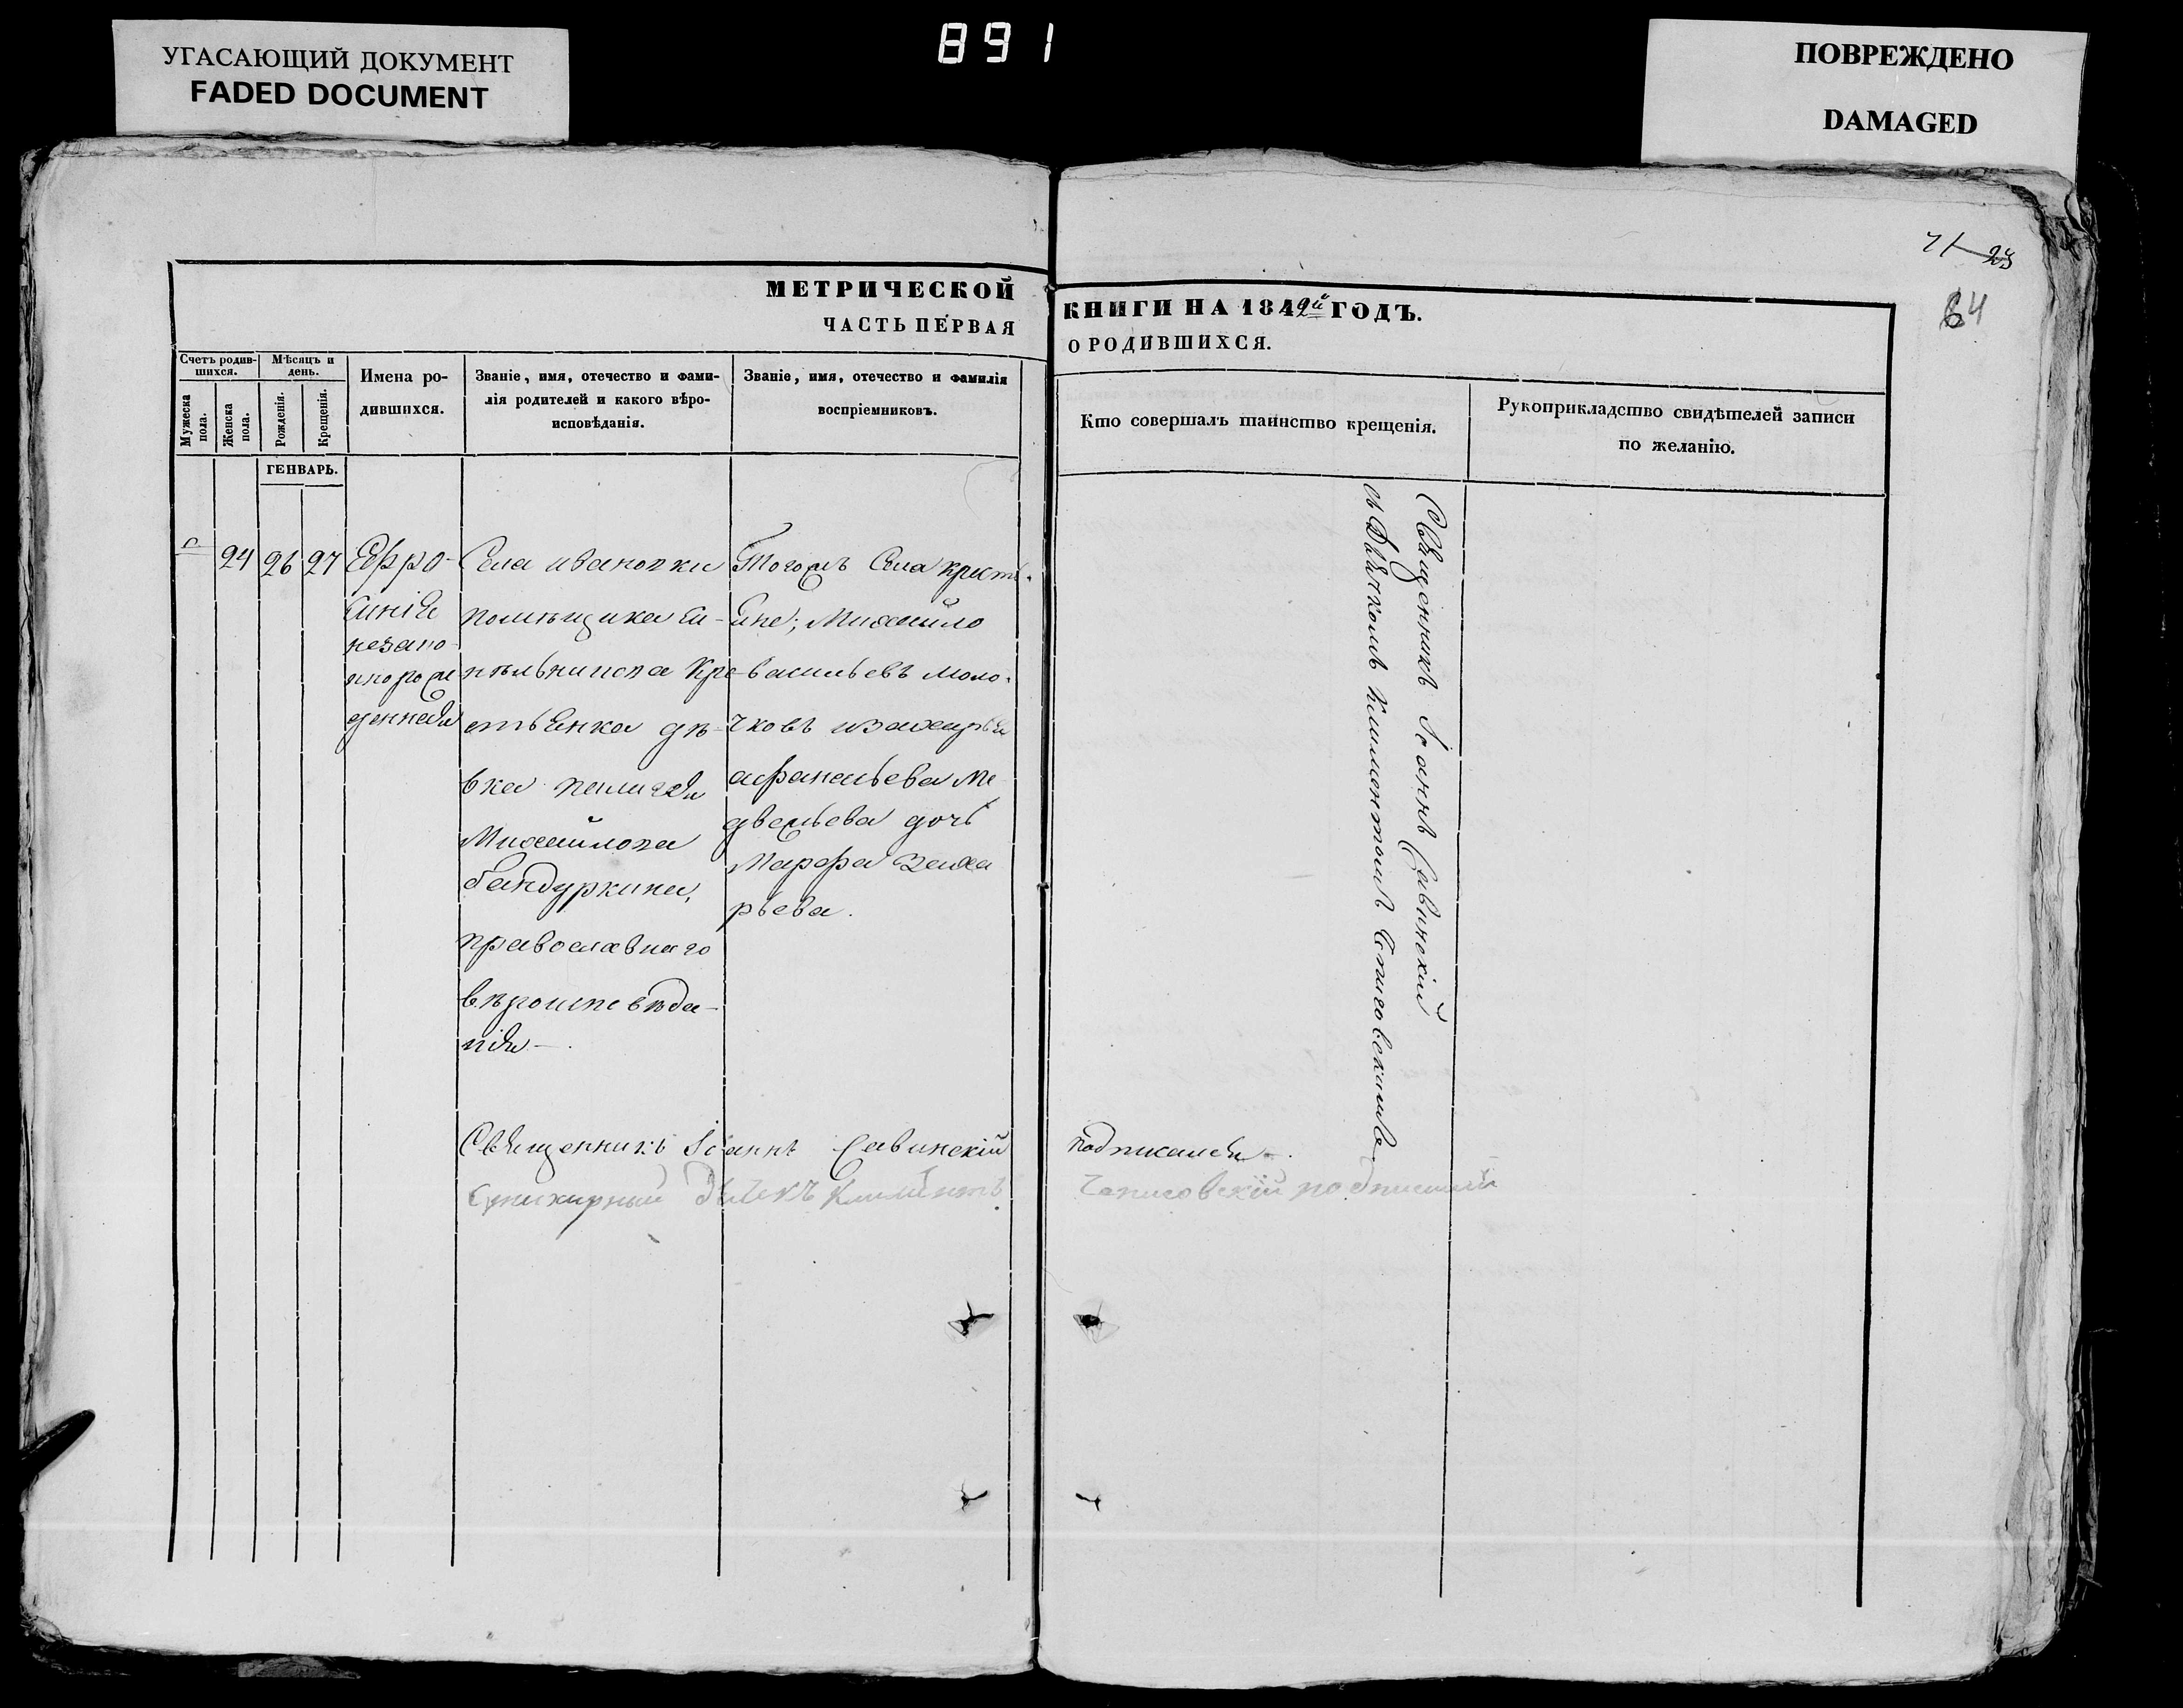 УГАСАЮЩИЙ ДОКУМЕНТ
FADED DOCUMENT
891
ПОВРЕЖДЕНО
DAMAGED
71 23
64
МЕТРИЧЕСКОЙ
ЧАСТЬ ПЕРВАЯ
КНИГИ НА 1842й ГОДЪ.
О РОДИВШИХСЯ.
Счетъ родив-
шихся.
Мужеска
пола.
Женска
пола.
Мѣсяцъ и
день.
Рожденія.
Крещенія.
Имена ро-
дившихся.
Званіе, имя, отечество и фами-
лія родителей и какого вѣро-
исповѣданія.
Званіе, имя, отечество и фамилія
воспріемниковъ.
Кто совершалъ таинство крещенія.
Рукоприкладство свидѣтелей записи
по желанію.
ГЕНВАРЬ.
24 26 27
Ефро-
синія
незако
ннорож
денная
Села ивановки
помѣщика
Кре
стьянка дѣ-
вка пелагея
Михайлова
бандуркина,
православнаго
вѣроисповѣда-
нія
Тогожъ Села крестья
яне; Михайло
васильевъ моло-
чковъ изахарья
афанасьева ме
двежьева дочь
Марфа Заха
рьева.
Священникъ Іоаннъ Савинскій
съ Дьячкомъ Климентомъ
Священникъ Іоаннъ Савинскій
подписался.
Дьячекъ Климентъ